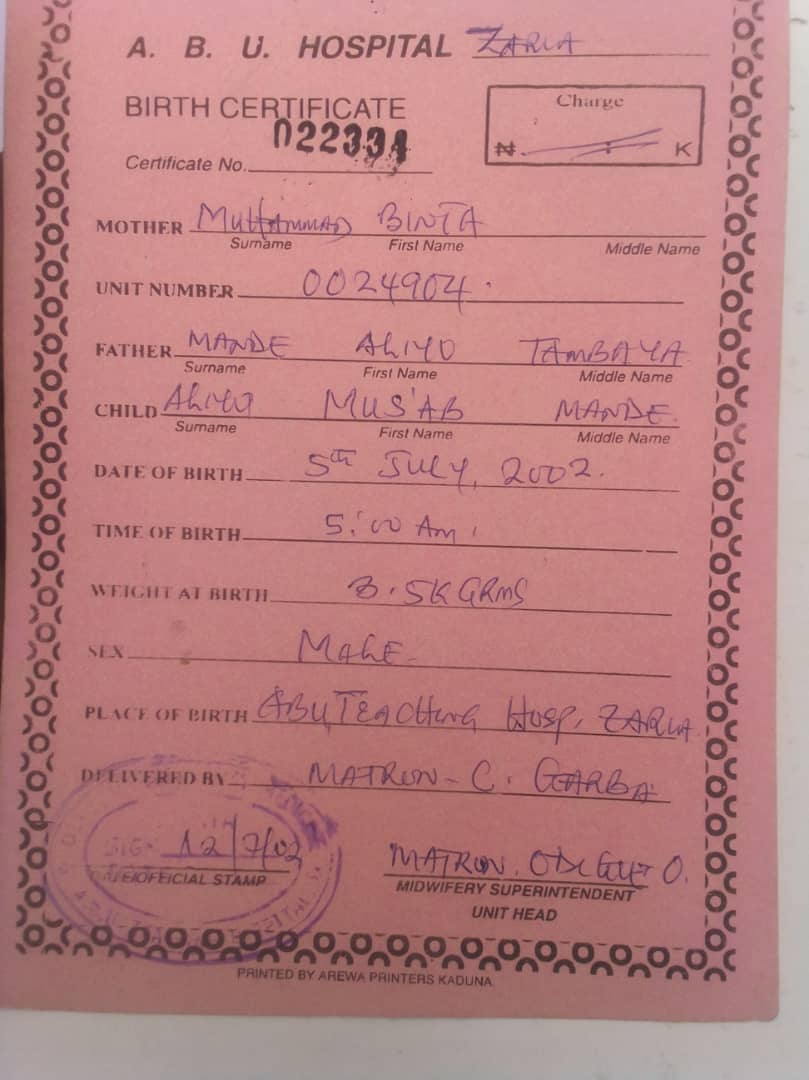 A. B. U. HOSPITAL ZARIA
BIRTH CERTIFICATE
Charge
₦ : K
Certificate No. 022334
MOTHER MUHAMMAD BINTA
Surname First Name Middle Name
UNIT NUMBER 0024904.
FATHER MANDE ALIYU TAMBAYA
Surname First Name Middle Name
CHILD ALIYU MUS'AB MANDE.
Surname First Name Middle Name
DATE OF BIRTH 5th JULY, 2002.
TIME OF BIRTH 5:00 Am
WEIGHT AT BIRTH 3.5K GRMS
SEX MALE
PLACE OF BIRTH ABU TEACHING HOSP, ZARIA
DELIVERED BY MATRON - C. GARBA
SIGN 12/7/02
DATE/OFFICIAL STAMP
MATRON O.
MIDWIFERY SUPERINTENDENT
UNIT HEAD
PRINTED BY AREWA PRINTERS KADUNA.